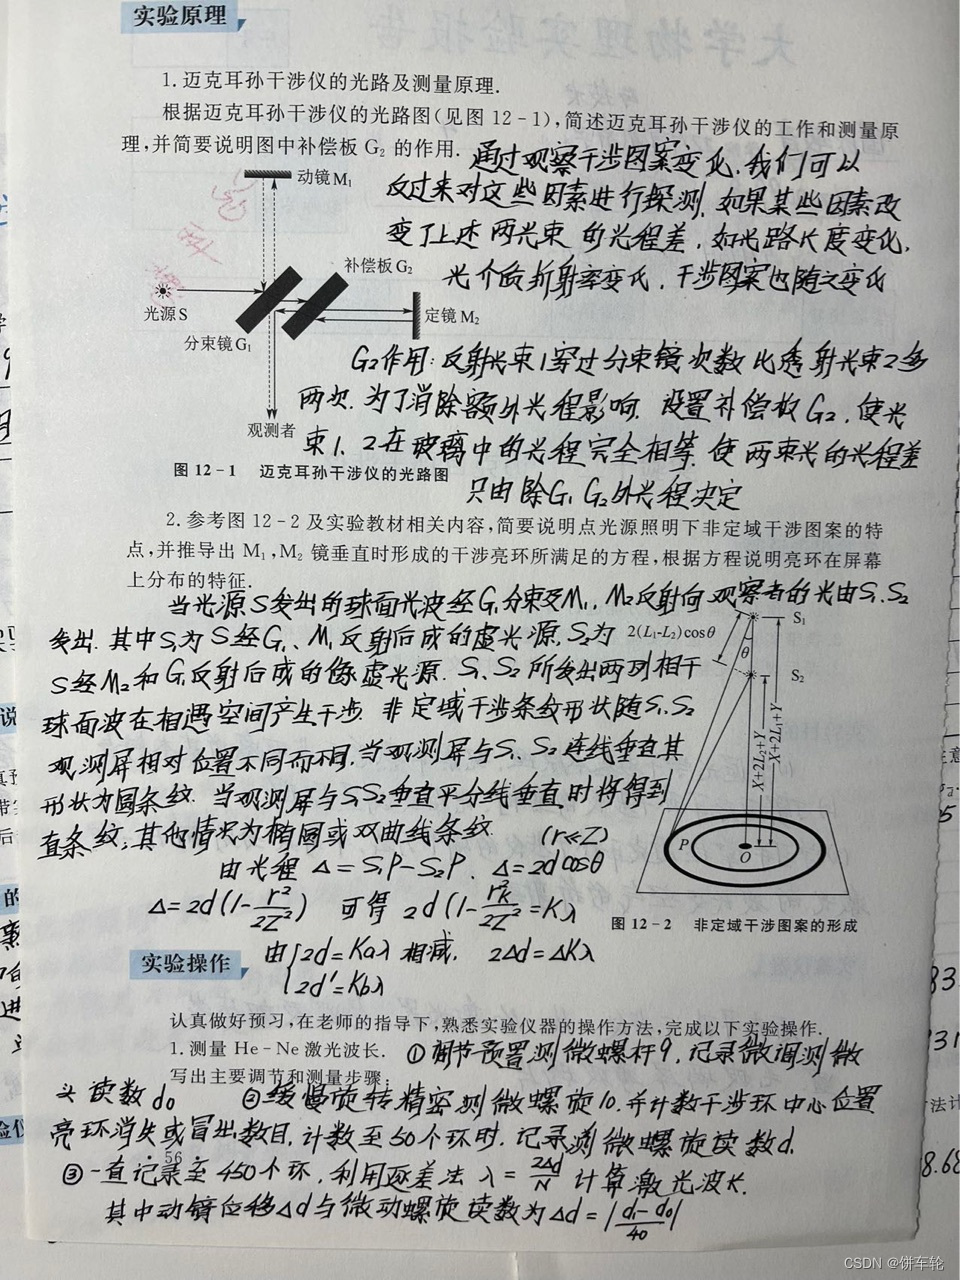 实验原理
1.迈克耳孙干涉仪的光路及测量原理.
根据迈克耳孙干涉仪的光路图(见图12-1),简述迈克耳孙干涉仪的工作和测量原
理,并简要说明图中补偿板G₂的作用.
通过观察干涉图案变化,我们可以
反过来对这些因素进行探测,如果某些因素改
变了上述两光束的光程差,如光路长度变化,
光介质折射率变化,干涉图案也随之变化
动镜M₁
补偿板G₂
光源S
定镜M₂
分束镜G₁
观测者
图12-1 迈克耳孙干涉仪的光路图
G₂作用:反射光束1穿过分束镜次数比透射光束2多
两次.为了消除额外光程影响.设置补偿板G₂,使光
束1、2在玻璃中的光程完全相等.使两束光的光程差
只由除G₁G₂外光程决定
2.参考图12-2及实验教材相关内容,简要说明点光源照明下非定域干涉图案的特
点,并推导出M₁,M₂镜垂直时形成的干涉亮环所满足的方程,根据方程说明亮环在屏幕
上分布的特征.
当光源S发出的球面光波经G₁分束及M₁、M₂反射向观察者的光由S₁、S₂
发出.其中S₁为S经G₁、M₁反射后成的虚光源,S₂为
S经M₂和G₁反射后成的像虚光源.S₁、S₂所发出两列相干
球面波在相遇空间产生干涉.非定域干涉条纹形状随S₁、S₂
观测屏相对位置不同而不同,当观测屏与S₁、S₂连线垂直其
形状为圆条纹.当观测屏与S₁S₂垂直平分线垂直时将得到
直条纹;其他情况为椭圆或双曲线条纹. (r≪Z)
由光程 Δ=S₁P-S₂P. Δ=2dcosθ
Δ=2d(1-r²/2Z²) 可得 2d(1-r²k/2Z²=Kλ
由{2d=Kaλ 相减. 2Δd=ΔKλ
2d'=Kbλ
2(L₁-L₂)cosθ
S₁
θ
S₂
X+2L₂+Y
X+2L₁+Y
P
O
图12-2 非定域干涉图案的形成
实验操作
认真做好预习,在老师的指导下,熟悉实验仪器的操作方法,完成以下实验操作.
1.测量He-Ne激光波长. ①调节预置测微螺杆9,记录微调测微
写出主要调节和测量步骤:
头读数d₀ ②缓慢旋转精密测微螺旋10.并计数干涉环中心位置
亮环消失或冒出数目,计数至50个环时.记录测微螺旋读数d₁
56
③一直记录至450个环,利用逐差法λ=2Δd/N计算激光波长.
其中动镜位移Δd与微动螺旋读数为Δd=|d₁-d₀/40|
CSDN @饼车轮